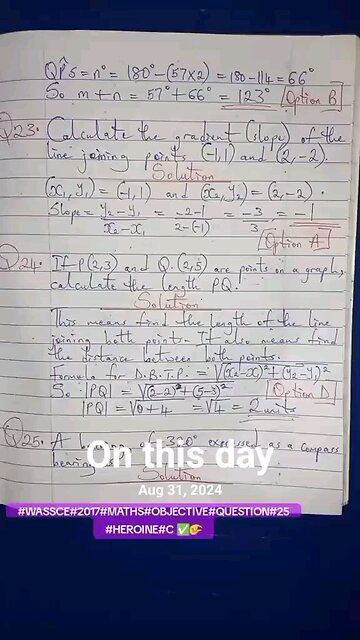 QP̂S = n° = 180° - (57×2) = 180 - 114 = 66°
So m + n = 57° + 66° = 123° Option B
Q23. Calculate the gradient (slope) of the
line joining points (-1,1) and (2,-2).
Solution
(x₁, y₁) = (-1,1) and (x₂, y₂) = (2,-2).
Slope = y₂-y₁/x₂-x₁ = -2-1/2-(-1) = -3/3 = -1
Option A
Q24. If P(2,3) and Q(2,5) are points on a graph,
calculate the length PQ.
Solution
This means find the length of the line
joining both points. It also means find
the distance between both points.
Formula for D.B.T.P. = √(x₂-x₁)²+(y₂-y₁)²
So |PQ| = √(2-2)²+(5-3)² Option D
|PQ| = √0+4 = √4 = 2 units
Q25. A of 320° expressed as a compass
bearing
Solution
On this day
Aug 31, 2024
#WASSCE#2017#MATHS#OBJECTIVE#QUESTION#25
#HEROINE#C ✅